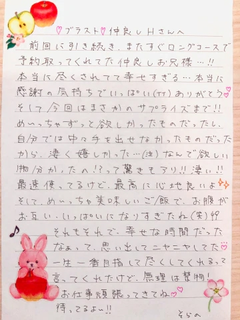 ♡プラスト♡仲良しHさんへ
前回に引き続き、またすぐロングコースで
予約取ってくれてた仲良しお兄様…!!
本当に尽くされてて幸せすぎる…本当に
感謝の気持ちでいっぱい(T^T)ありがとう♡
そして今回はまさかのサプライズまで!!
めーっちゃずっと欲しかったものだったし、
自分では中々手を出せなかったものだった
から、凄く嬉しかった…(泣)なんで欲しい
物分かったの!?って驚きもあり!!凄い!!
最速使ってるけど、最高に心地良いよ
そして、めーっちゃ美味しいご飯で、お腹が
お互い、いっぱいになりすぎたね(笑)
それもそれで、幸せな時間だった
なぁって、思い出してニヤニヤしてた
一生一番目指して尽くしてくれるって
言ってくれたけど、無理は禁物!
お仕事頑張ってきてね♡
待ってるよー!!